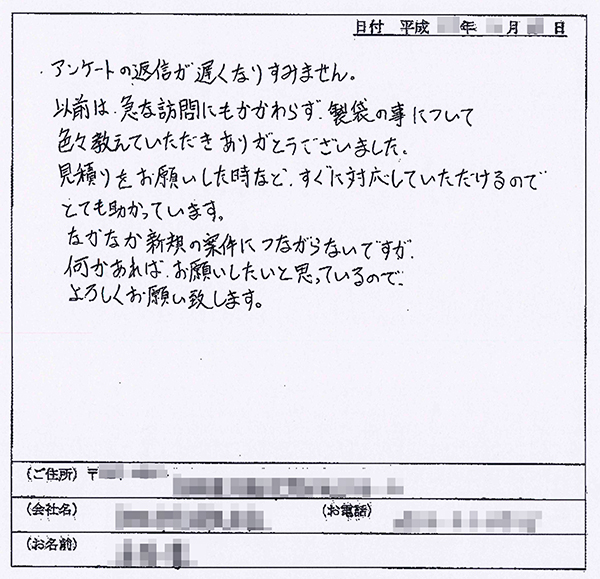 日付 平成 年 月 日
アンケートの返信が遅くなりすみません。
以前は、急な訪問にもかかわらず、製袋の事について
色々教えていただきありがとうございました。
見積りをお願いした時など、すぐに対応していただけるので
とても助かっています。
なかなか新規の案件につながらないですが、
何かあれば、お願いしたいと思っているので、
よろしくお願い致します。
(ご住所) 〒
(会社名) (お電話)
(お名前)